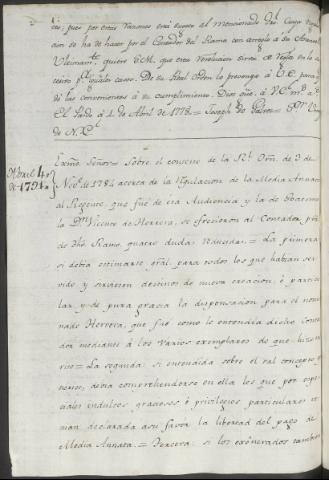 ce, pues por estas razones está exento el mencionado
cion se ha de hacer por el Contador del Ramo con arreglo a
Ultimam.te quiere S.M. que esta resolucion sirva de regla en lo su
cesibo p.a iguales casos. De su Real orden lo prevengo à V.E. para
di las convenientes à su cumplimiento. Dios gue. à V.E. m.s a.s
El Pardo à 1. de Abril de 1778.= Joseph de Galvez =
de N. E.
Abril 4,,
de 1791.
Exmo. Señor= Sobre el concepto de la R.l Orn. de 3 de
Nov.e de 1784 acerca de la regulacion de la Media Annata
al Regente, que fué de esta Audiencia y la de Goatem.a
D.n Vicente de Herrera, se ofrecieron al Contador
de dho Ramo quatro dudas reducidas.= La primera
si debia estimarse gral. para todos los que habian ser
vido y sirviesen destinos de nueva creacion, ó particu
lar y de pura gracia la dispensacion para el nomi
nado Herrera, que fué como lo entendió dicho Conta
dor mediante à los varios exemplares de que hizo
rio= La segunda: si entendida sobre el tal concepto
debia comprehenderse en ella los que por espe
ciales indultos graciosos, ó privilegios particulares te
nian declarada à su favor la libertad del pago de
Media Annata.= Tercera: si los exônerados tambien